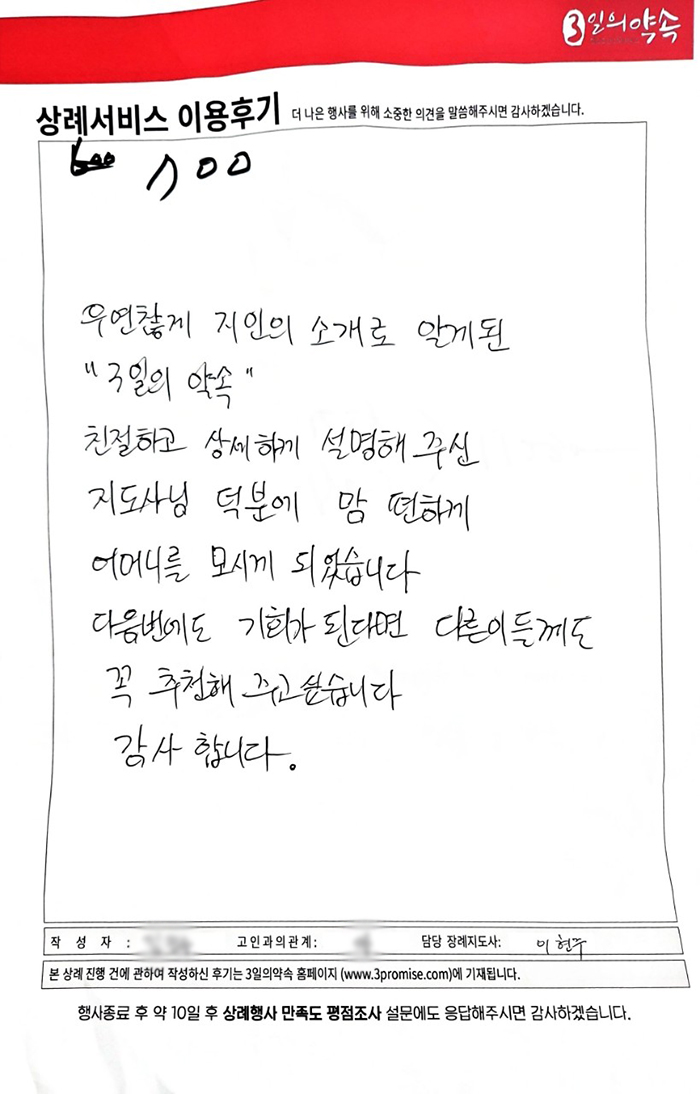 3일의약속
상례서비스 이용후기 더 나은 행사를 위해 소중한 의견을 말씀해주시면 감사하겠습니다.
우연찮게 지인의 소개로 알게된
"3일의 약속"
친절하고 상세하게 설명해 주신
지도사님 덕분에 맘 편하게
어머니를 모시게 되었습니다
다음번에도 기회가 된다면 다른이들께도
꼭 추천해 주고싶습니다
감사 합니다.
작 성 자 : 고인과의관계: 담당 장례지도사: 이현주
본 상례 진행 건에 관하여 작성하신 후기는 3일의약속 홈페이지 (www.3promise.com)에 기재됩니다.
행사종료 후 약 10일 후 상례행사 만족도 평점조사 설문에도 응답해주시면 감사하겠습니다.